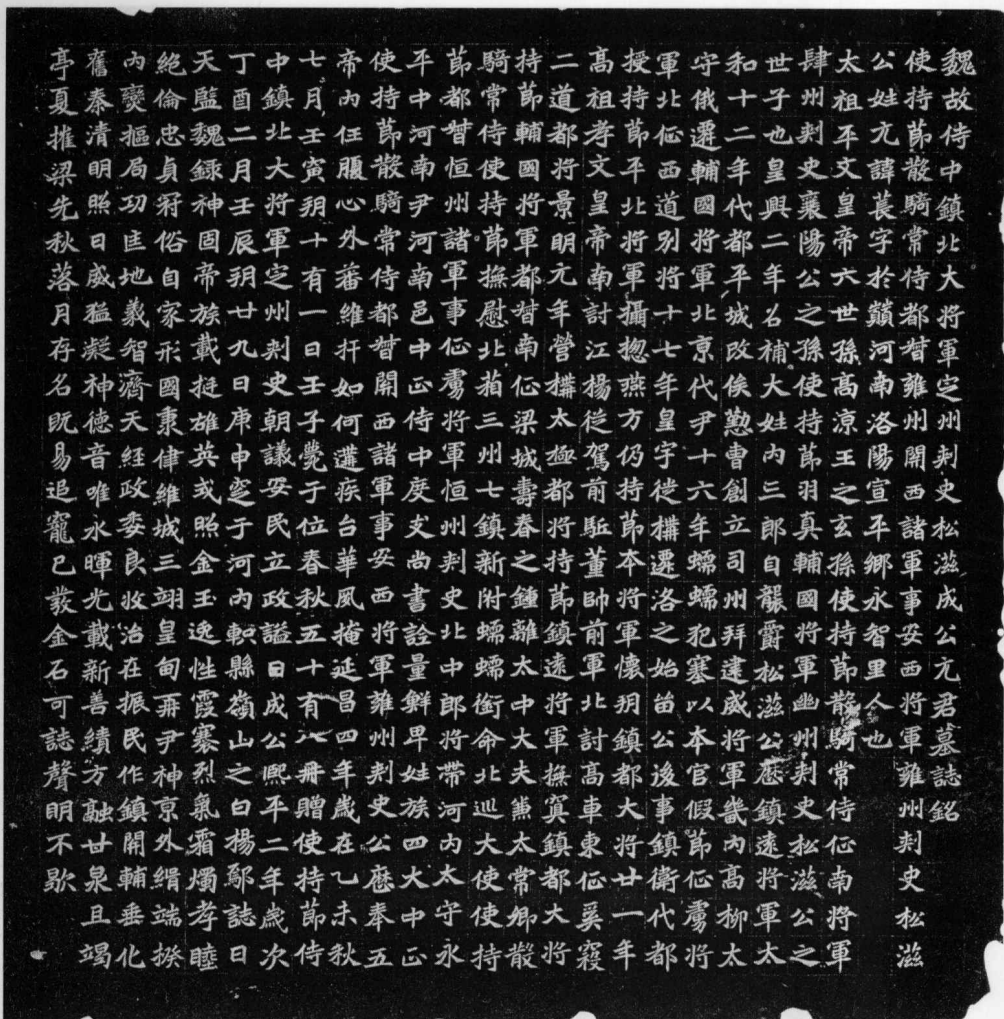 魏故侍中鎮北大将軍定州刾史松滋成公元君墓誌銘
使持節散騎常侍都督雍州關西諸軍事安西将軍雍州刾史松滋
公姓元諱萇字於巔河南洛陽宣平鄉永智里人也
太祖平文皇帝六世孫高涼王之玄孫使持節散騎常侍征南将軍
肆州刾史襄陽公之孫使持節羽真輔國将軍幽州刾史松滋公之
世子也皇興二年召補大姓內三郎自襲爵松滋公歷鎮遠将軍太
和十二年代都平城改俟懃曹創立司州拜建威将軍畿內高柳太
守俄遷輔國将軍北京代尹十六年蠕蠕犯塞以本官假節征虜将
軍北征西道別将十七年皇宇徙構遷洛之始留公後事鎮衛代都
授持節平北将軍攝揔燕方仍持節本将軍懷朔鎮都大将廿一年
高祖孝文皇帝南討江楊從駕前駈董帥前軍北討高車東征奚寇
二道都将景明元年營構太極都将持節鎮遠将軍撫冥鎮都大将
持節輔國将軍都督南征梁城壽春之鍾離太中大夫兼太常卿散
騎常侍使持節撫慰北箱三州七鎮新附蠕蠕銜命北巡大使使持
節都督恒州諸軍事征虜将軍恒州刾史北中郎将帶河內太守永
平中河南尹河南邑中正侍中度支尚書詮量鮮卑姓族四大中正
使持節散騎常侍都督開西諸軍事安西将軍雍州刾史公歷奉五
帝內任腹心外蕃維扞如何遘疾台華風掩延昌四年歲在乙未秋
七月壬寅朔十有一日壬子薨于位春秋五十有八冊贈使持節侍
中鎮北大将軍定州刾史朝議安民立政謚曰成公熙平二年歲次
丁酉二月壬辰朔廿九日庚申窆于河內軹縣嶺山之白楊鄔誌曰
天監魏録神固帝族載挺雄英或照金玉逸性霞褰烈氣霜燭孝睦
絕倫忠貞冠俗自家形國秉律維城三翊皇甸再尹神京外緝端揆
內奱摳局功匡地義智濟天經政委良牧治在振民作鎮開輔垂化
舊秦清明照日威猛凝神德音唯永暉光載新善績方融甘泉且竭
亭夏摧梁先秋落月存名既易追寵已發金石可誌聲明不歇